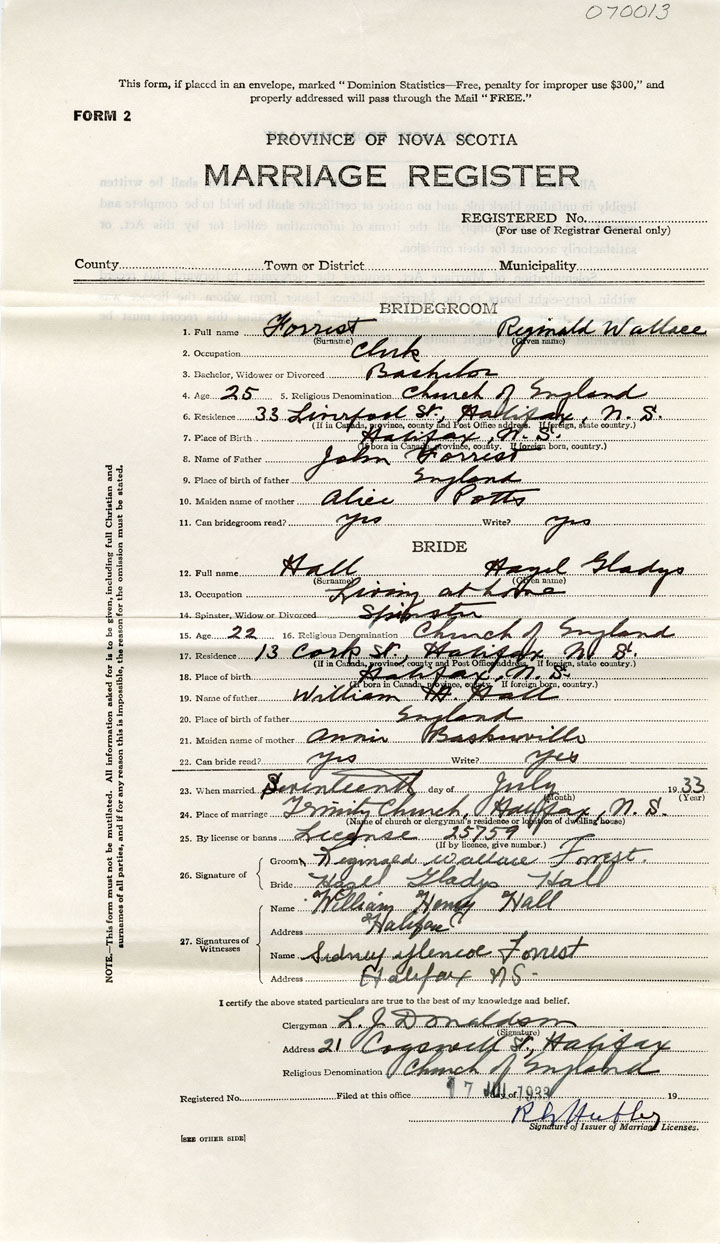 070013
This form, if placed in an envelope, marked "Dominion Statistics—Free, penalty for improper use $300," and
properly addressed will pass through the Mail "FREE."
FORM 2
PROVINCE OF NOVA SCOTIA
MARRIAGE REGISTER
REGISTERED No.
(For use of Registrar General only)
County Town or District Municipality
BRIDEGROOM
1. Full name Forrest Reginald Wallace
(Surname) (Given name)
2. Occupation Clerk
3. Bachelor, Widower or Divorced Bachelor
4. Age 25 5. Religious Denomination Church of England
6. Residence 33 Liverpool St., Halifax, N. S.
(If in Canada, province, county and Post Office address. If foreign, state country.)
7. Place of Birth Halifax, N. S.
(If born in Canada, province, county. If foreign born, country.)
8. Name of Father John Forrest
9. Place of birth of father England
10. Maiden name of mother Alice Potts
11. Can bridegroom read? yes Write? yes
BRIDE
12. Full name Hall Hazel Gladys
(Surname) (Given name)
13. Occupation Living at home
14. Spinster, Widow or Divorced Spinster
15. Age 22 16. Religious Denomination Church of England
17. Residence 13 Cork St., Halifax N. S.
(If in Canada, province, county and Post Office address. If foreign, state country.)
18. Place of birth Halifax, N. S.
(If born in Canada, province, county. If foreign born, country.)
19. Name of father William H. Hall
20. Place of birth of father England
21. Maiden name of mother Annie Baskerville
22. Can bride read? yes Write? yes
23. When married Seventeenth day of July 1933
(Month) (Year)
24. Place of marriage Trinity Church, Halifax, N. S.
(Name of church or clergyman's residence or location of dwelling house)
25. By license or banns License 25759
(If by licence, give number.)
26. Signature of
Groom Reginald Wallace Forrest.
Bride Hazel Gladys Hall
27. Signatures of Witnesses
Name William Henry Hall
Address Halifax
Name Sidney Glencoe Forrest
Address Halifax NS-
I certify the above stated particulars are true to the best of my knowledge and belief.
Clergyman L. J. Donaldson
(Signature)
Address 21 Cogswell St, Halifax
Religious Denomination Church of England
Registered No. Filed at this office 17 JUL 1933 day of 19
Signature of Issuer of Marriage Licenses.
[SEE OTHER SIDE]
NOTE.—This form must not be mutilated. All information asked for is to be given, including full Christian and
surnames of all parties, and if for any reason this is impossible, the reason for the omission must be stated.